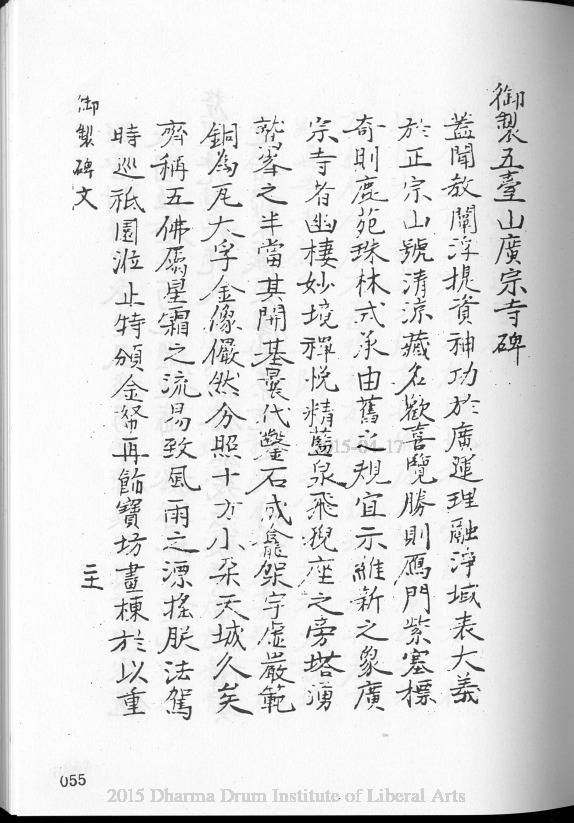 御製五臺山廣宗寺碑
蓋聞教闡浮提資神功於廣運理融淨域表大義
於正宗山號清涼藏名歡喜覽勝則鴈門紫塞標
奇則鹿苑珠林式承由舊之規宜示維新之象廣
宗寺者幽棲妙境禪悅精藍泉飛猊座之旁塔湧
鷲峯之半當其開基曩代鑿石成龕架宇虛嚴範
銅為瓦大孚金像儼然分照十方小朵天城久矣
齊稱五佛屬星霜之流易致風雨之漂搖朕法駕
時巡祇園蒞止特頒金帑再飾寶坊畫棟於以重
御製碑文
二十
055
2015-04-17
2015 Dharma Drum Institute of Liberal Arts